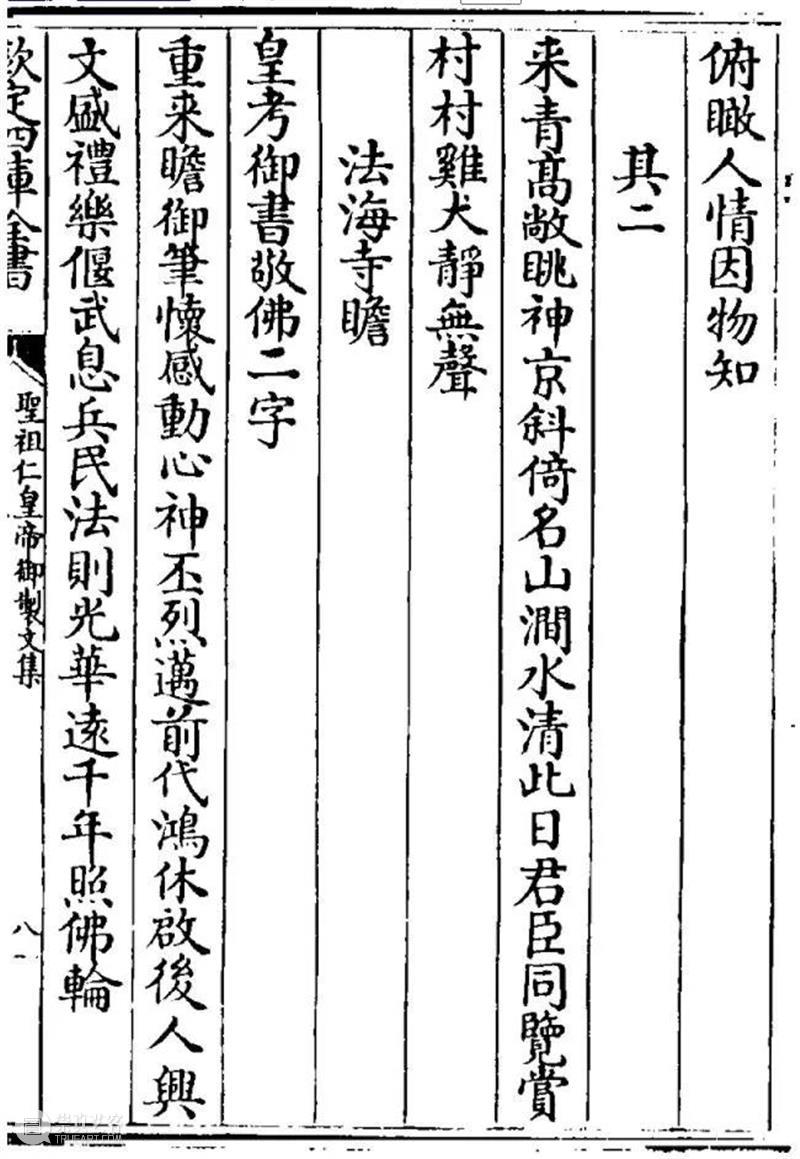 俯瞰人情因物知
其二
来青高敞眺神京斜倚名山澗水清此日君臣同覽賞
村村雞犬靜無聲
法海寺瞻
皇考御書敬佛二字
重来瞻御筆懷感動心神丕烈邁前代鴻休啟後人興
文盛禮樂偃武息兵民法則光華遠千年照佛輪
欽定四庫全書
聖祖仁皇帝御製文集
八